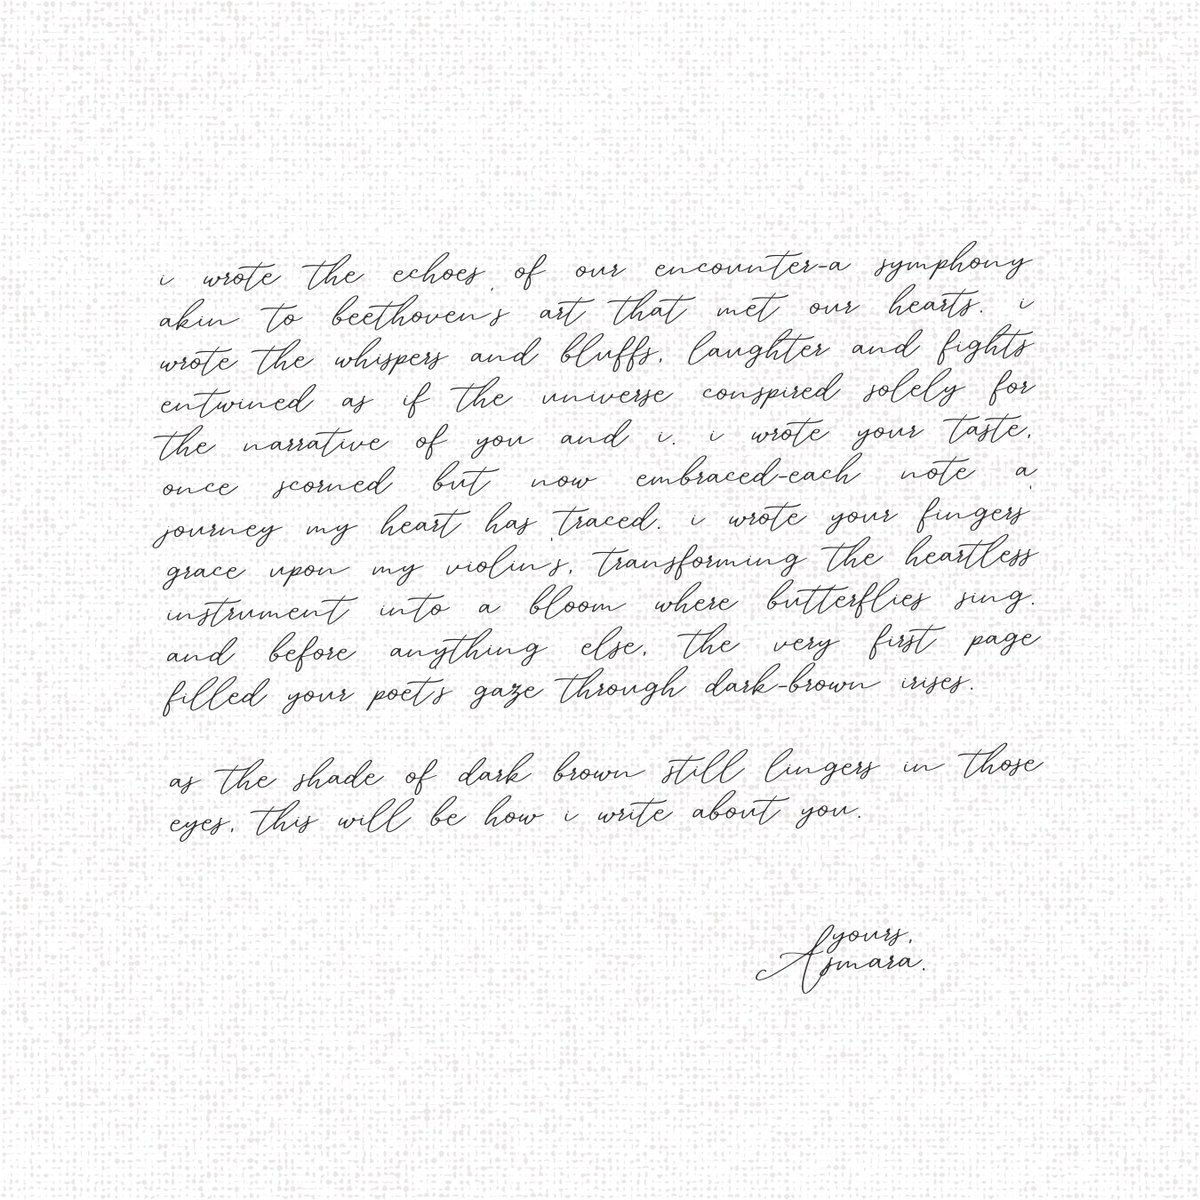 i wrote the echoes of our encounter-a symphony
akin to beethoven's art that met our hearts. i
wrote the whispers and bluffs, laughter and fights
entwined as if the universe conspired solely for
the narrative of you and i. i wrote your taste,
once scorned but now embraced-each note a
journey my heart has traced. i wrote your fingers'
grace upon my violin's, transforming the heartless
instrument into a bloom where butterflies sing.
and before anything else, the very first page
filled your poet's gaze through dark-brown irises.
as the shade of dark brown still lingers in those
eyes, this will be how i write about you.
yours,
Asmara.